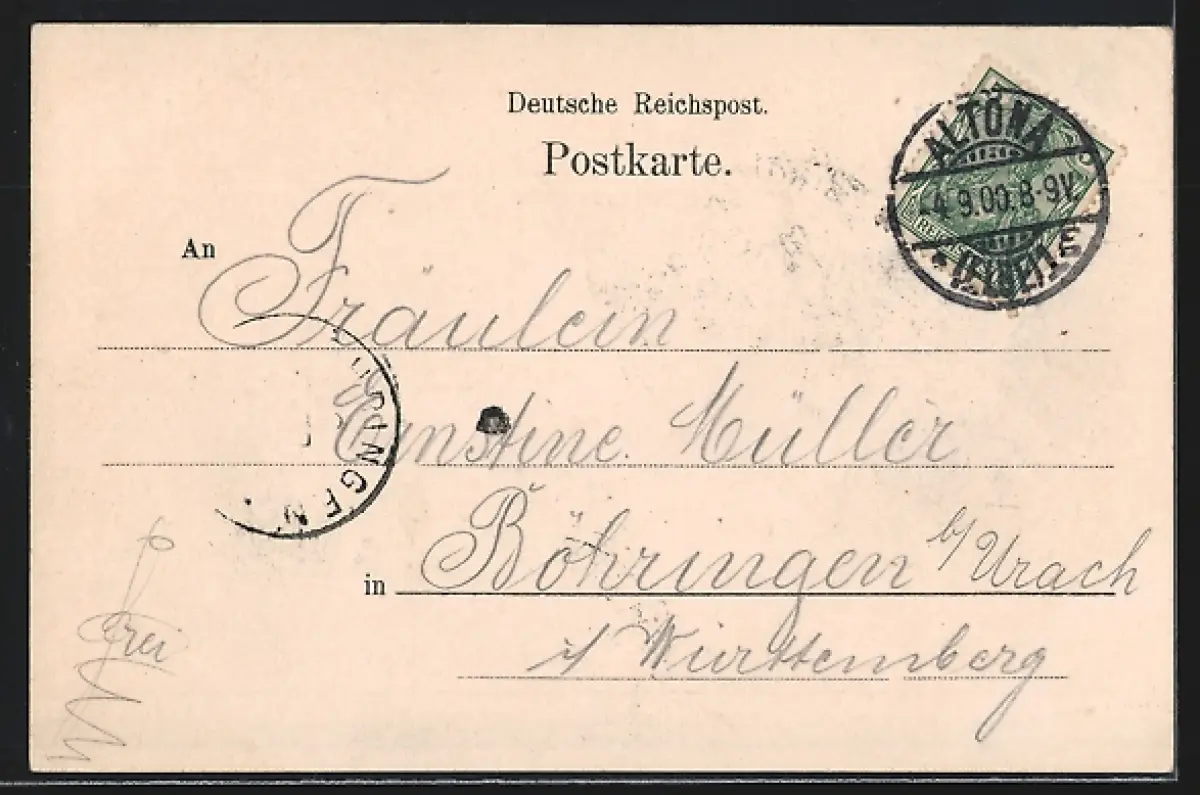 Deutsche Reichspost.
Postkarte.
ALTONA
4.9.00. 8-9V
* (ELBE) 1 E
An Fräulein
Ernstine Müller
in Böhringen b/ Urach
i/ Württemberg
frei